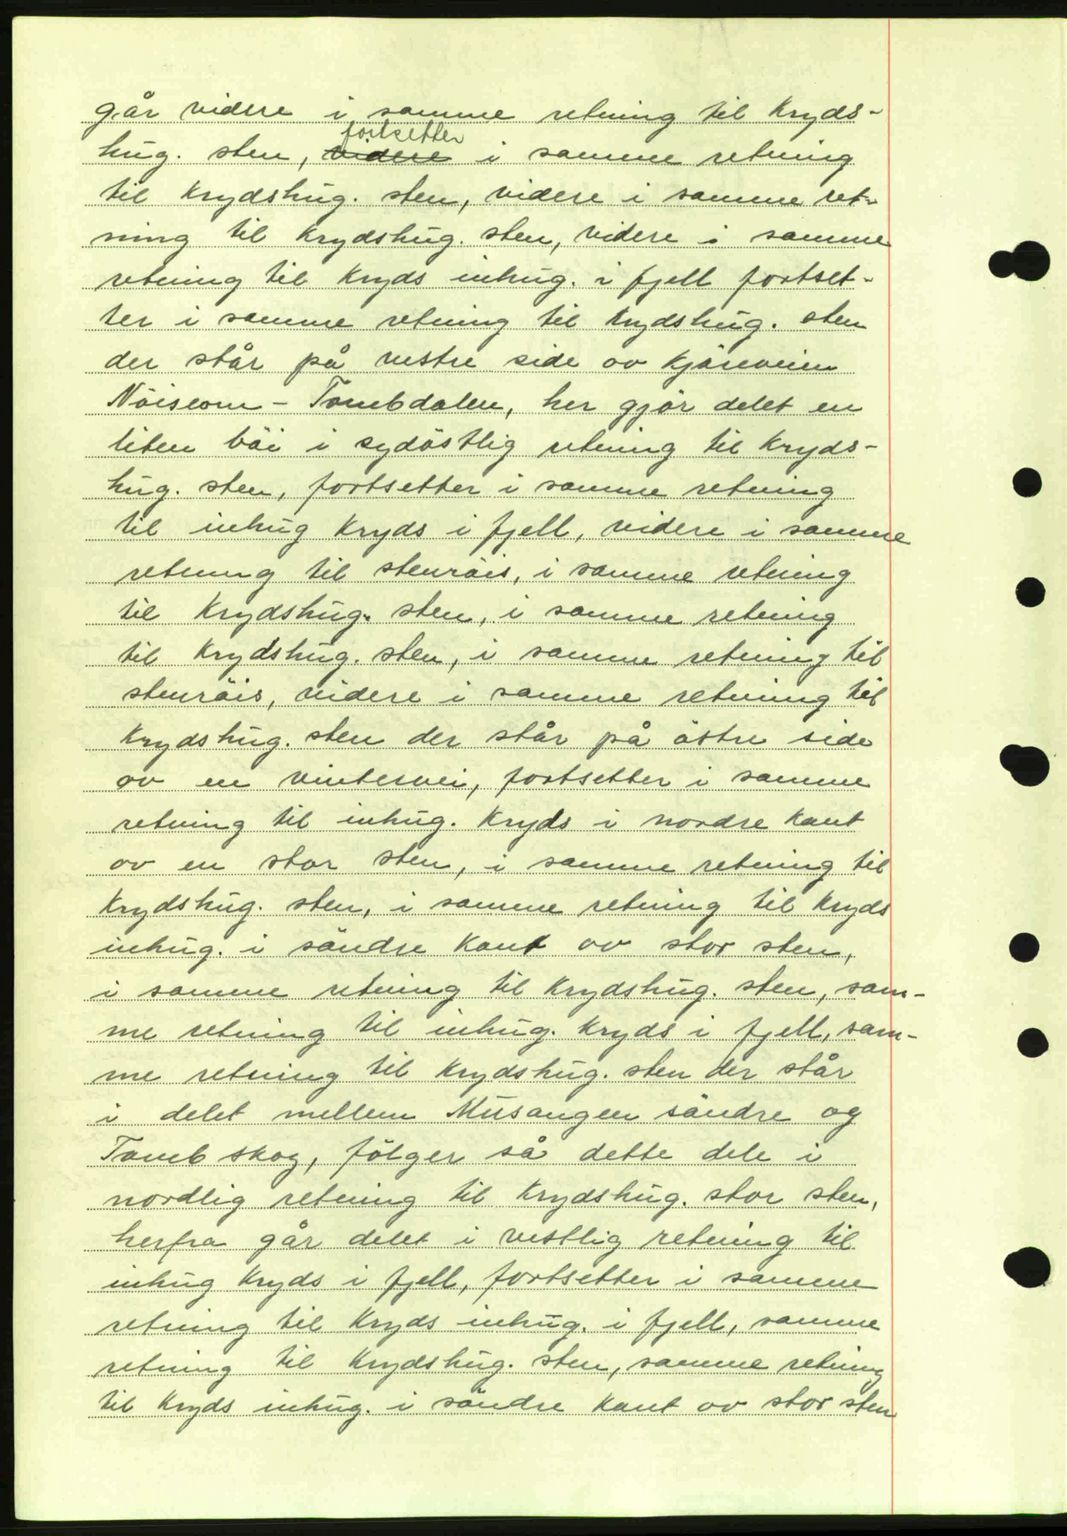 går videre i samme retning til Kryds-
hug. sten, ~~videre~~ fortsetter i samme retning
til Krydshug. sten, videre i samme ret-
ning til Krydshug. sten, videre i samme
retning til Kryds inhug. i fjell fortset-
ter i samme retning til Krydshug. sten
der står på vestre side av Kjøreveien
Nöisom - Tombdalen, her gjör delet en
liten böi i sydöstlig retning til Kryds-
hug. sten, fortsetter i samme retning
til inhug Kryds i fjell, videre i samme
retning til stenröis, i samme retning
til Krydshug. sten, i samme retning
til Krydshug. sten, i samme retning til
stenröis, videre i samme retning til
Krydshug. sten der står på östre side
av en vintervei, fortsetter i samme
retning til inhug. Kryds i nordre Kant
av en stor sten, i samme retning til
Krydshug. sten, i samme retning til Kryds
inhug. i söndre Kant av stor sten,
i samme retning til Krydshug. sten, sam-
me retning til inhug. Kryds i fjell, sam-
me retning til Krydshug. sten der står
i delet mellem Musangen söndre og
Tomb skog, fölger så dette dele i
nordlig retning til Krydshug. stor sten,
herfra går delet i vestlig retning til
inhug Kryds i fjell, fortsetter i samme
retning til Kryds inhug. i fjell, samme
retning til Krydshug. sten, samme retning
til Kryds inhug. i söndre Kant av stor sten